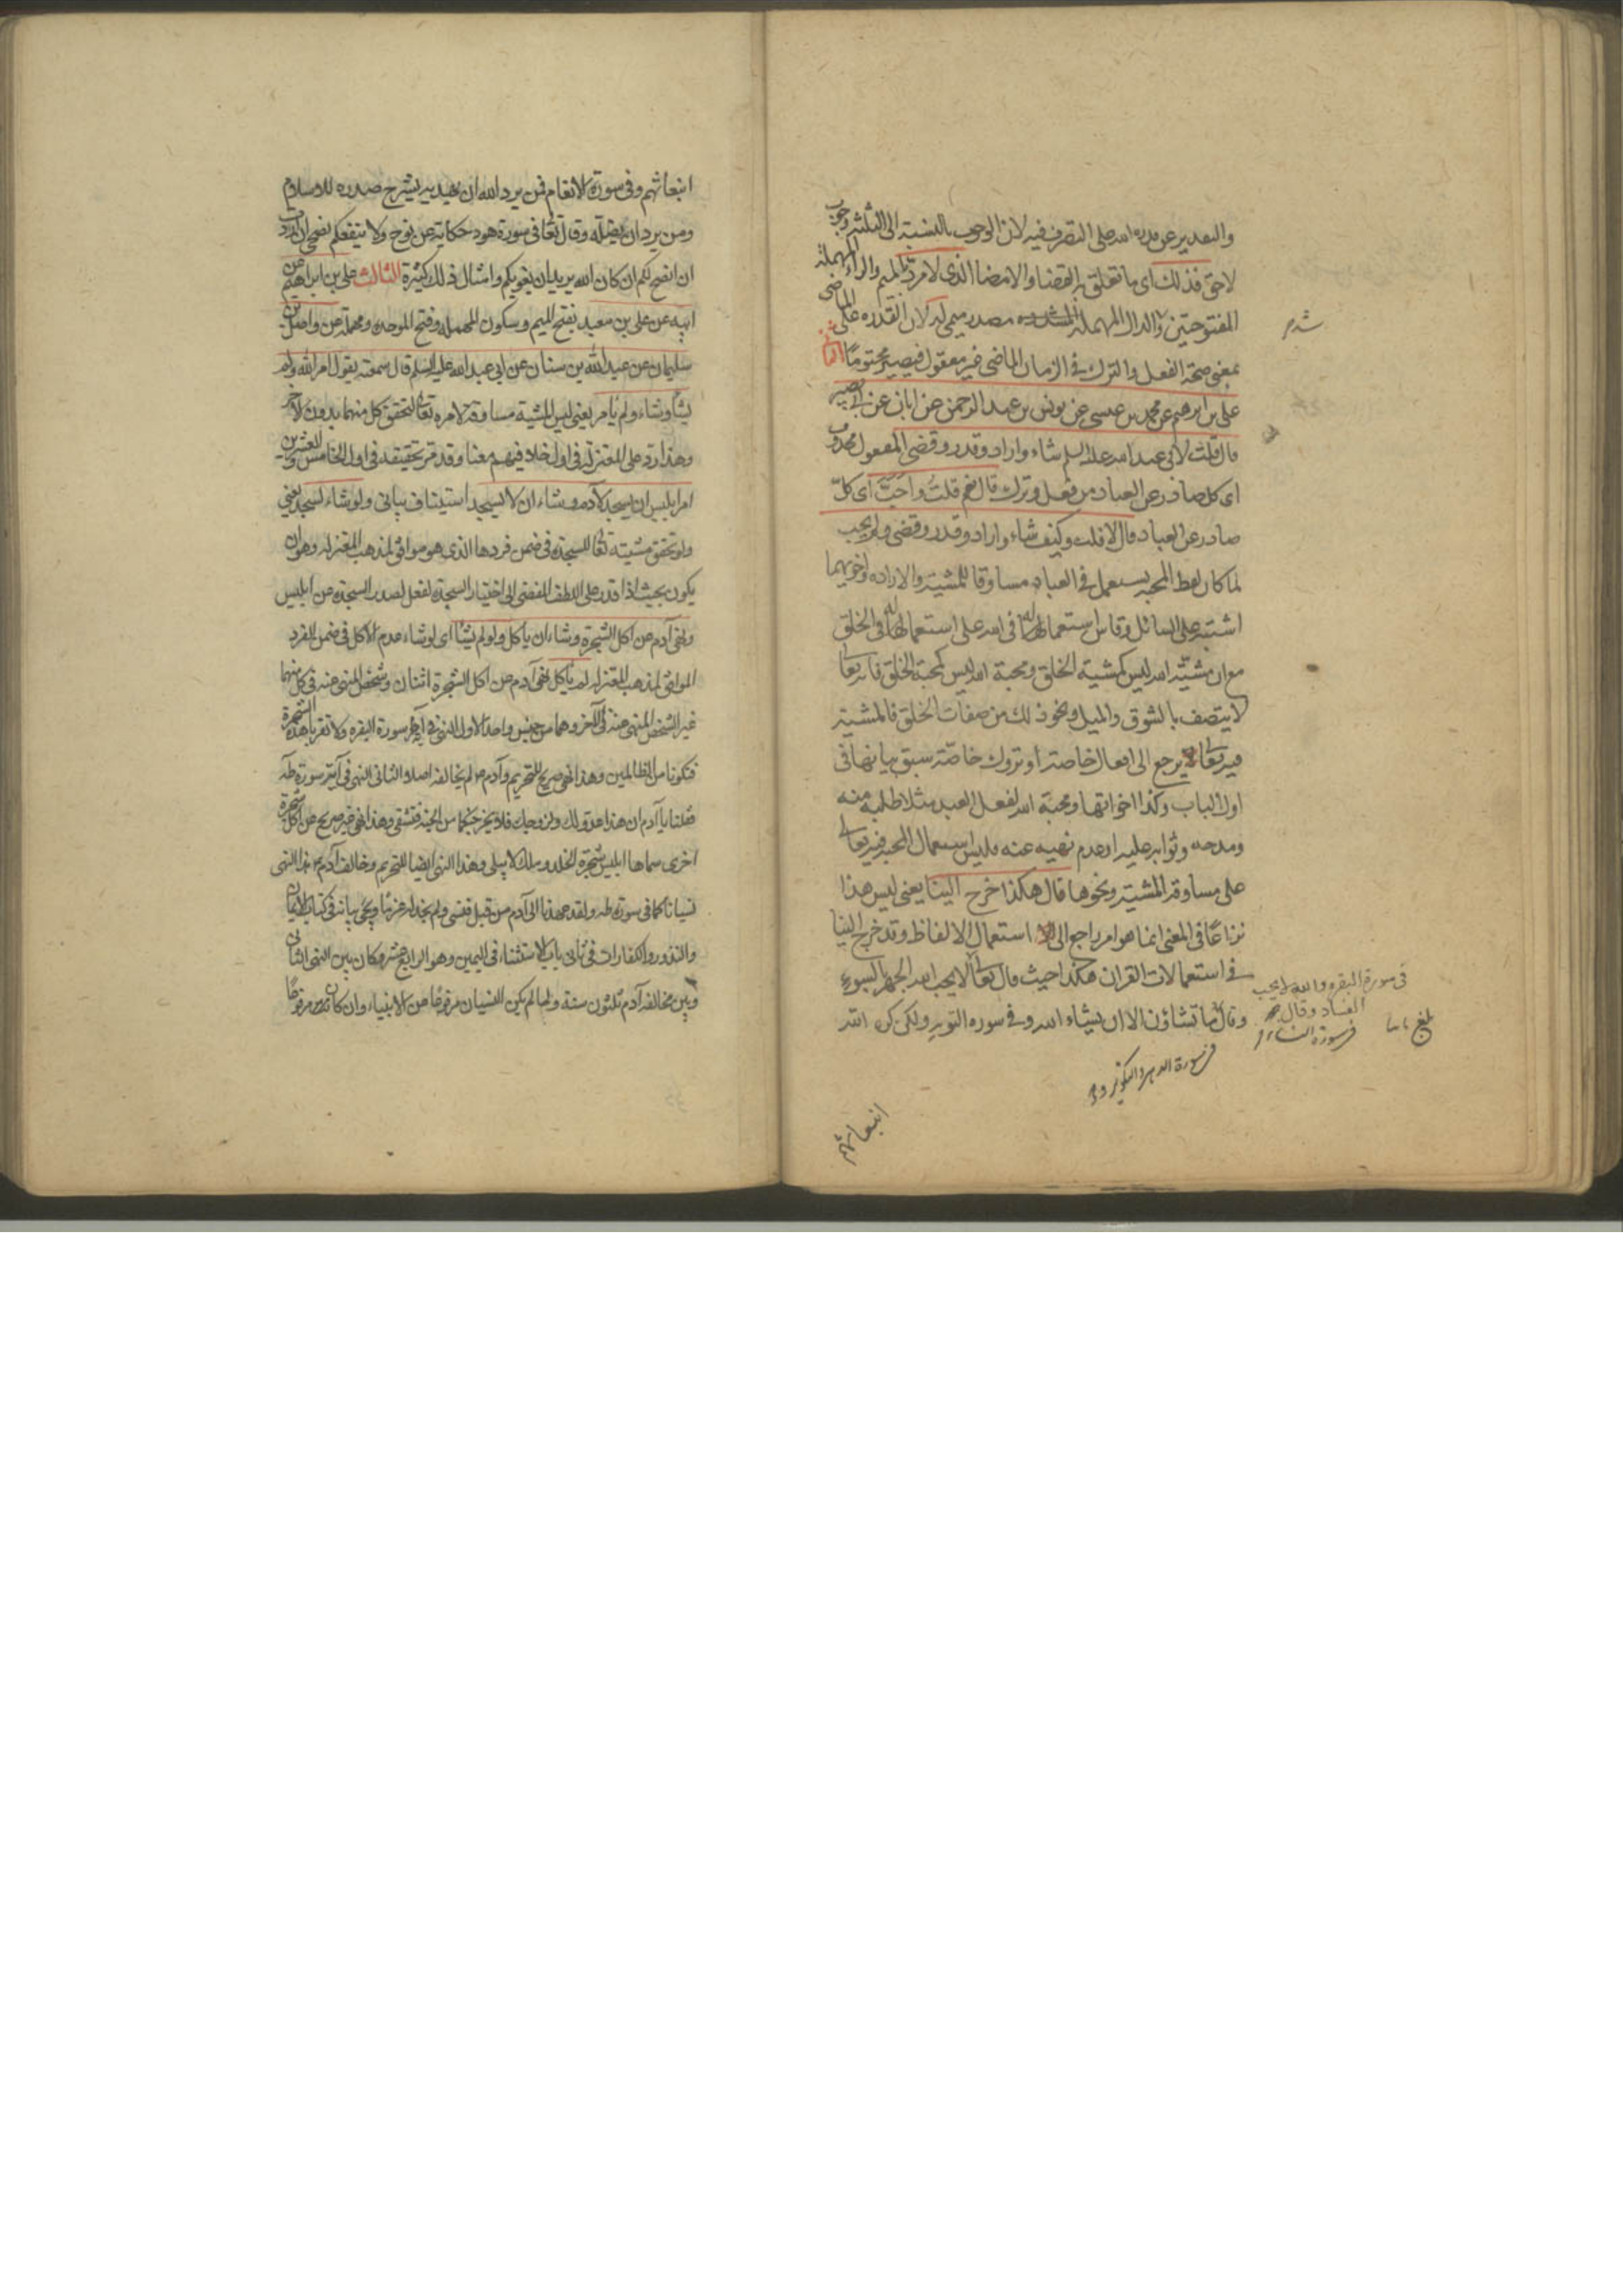 والتقدير عن قدرة الله على التصرف فيه لان الوجوب بالنسبة الى الثلثة وجوب
لاحق فذلك اى ما تعلق به القضا والامضا الذى لا مردّ بالميم والراء المهملة
المفتوحتين والدال المهملة المشددة مصدر ميمى له لان القدره على الماضى
بمعنى صحة الفعل والترك فى الزمان الماضى غير معقول فيصير محتومًا الثانى
على بن ابرهيم عن محمد بن عيسى عن يونس بن عبد الرحمن عن ابان عن ابى بصير
قال قلت لابى عبد الله عليه السلم شاء واراد وقدر وقضى المفعول محذوف
اى كل صادر عن العباد من فعل وترك قال نعم قلت واحبّ اى كلّ
صادر عن العباد قال لا قلت وكيف شاء واراد وقدر وقضى ولم يحب
لما كان لفظ المحبه يستعمل فى العباد مساوقا للمشية والاراده واخويهما
اشتبه على السائل وقاس استعمالها لله فى الله على استعمالها فى الخلق
مع ان مشيّة الله ليس كمشية الخلق ومحبة الله ليس كمحبة الخلق فانه تعالى
لا يتصف بالشوق والميل ونحو ذلك من صفات الخلق فالمشية
فيه تعالى يرجع الى افعال خاصة او تروك خاصّة سبق بيانها فى
اول الباب وكذا اخواتها ومحبّة الله لفعل العبد مثلا طلبه منه
ومدحه وثوابه عليه او عدم نهيه عنه فليس استعمال المحبه فيه تعالى
على مساوقة المشية ونحوها قال هكذا خرج الينا يعنى ليس هذا
نزاعًا فى المعنى انما هو امر راجع الى استعمال الالفاظ وقد خرج الينا
فى استعمالات القران هكذا حيث قال تعالى لا يحب الله الجهر بالسوء
وقال ما تشاؤن الا ان يشاء الله وفى سوره التوبه ولكن كره الله
شدم
فى سورة البقره والله لا يحب
الفساد وقال
فى سورة النساء
بلغ
فى سورة الدهر والتكوير
انبعاثهم
انبعاثهم وفى سورة الانعام فمن يرد الله ان يهديه يشرح صدره للاسلام
ومن يرد ان يضله وقال تعالى فى سورة هود حكاية عن نوح ولا ينفعكم نصحى ان اردت
ان انصح لكم ان كان الله يريد ان يغويكم وامثال ذلك كثيرة الثالث على بن ابراهيم عن
ابيه عن على بن معبد بفتح الميم وسكون المهمله وفتح الموحده ومهملة عن واصل بن
سليمان عن عبد الله بن سنان عن ابى عبد الله عليه السلم قال سمعته يقول امر الله ولم
يشأ وشاء ولم يأمر يعنى ليس المشية مساوقة لامره تعالى لتحقق كل منهما بدون الآخر
وهذا رد على المعتزلة فى اول خلافيهم معنا وقد مر تحقيقه فى اول الخامس والعشرين
امر ابليس ان يسجد لآدم وشاء ان لا يسجد استيناف بيانى ولو شاء لسجد يعنى
ولو تحقق مشيته تعالى للسجدة فى ضمن فردها الذى هو موافق لمذهب المعتزله وهو ان
يكون بحيث اذا قدر على اللطف المفضى الى اختيار السجدة لفعل لصدر السجدة من ابليس
ونهى آدم عن اكل الشجرة وشاء ان ياكل ولو لم يشأ اى لو شاء عدم الاكل فى ضمن الفرد
الموافق لمذهب المعتزله لم ياكل نهى آدم عن اكل الشجرة اثنان وشخص المنهى عنه فى كل منهما
غير الشخص المنهى عنه فى الآخر وهما من جنس واحد الاول النهى فى آية سورة البقره ولا تقربا هذه الشجرة
فتكونا من الظالمين وهذا نهى صريح للتحريم وآدم لم يخالفه اصلا والثانى النهى فى آية سورة طه
فقلنا يا آدم ان هذا عدو لك ولزوجك فلا يخرجنكما من الجنة فتشقى وهذا نهى غير صريح عن اكل شجرة
اخرى سماها ابليس شجرة الخلد وملك لا يبلى وهذا النهى ايضا للتحريم وخالف آدم هذا النهى
نسيانا كما فى سورة طه ولقد عهدنا الى آدم من قبل فنسى ولم نجد له عزمًا ويجئ بيانه فى كتاب الايمان
والنذور والكفارات فى ثانى باب الاستثناء فى اليمين وهو الرابع عشر وكان بين النهى الثانى
وبين مخالفة آدم ثلثون سنة ولما لم يكن النسيان مرفوعًا عن الانبياء وان كان مرفوعًا